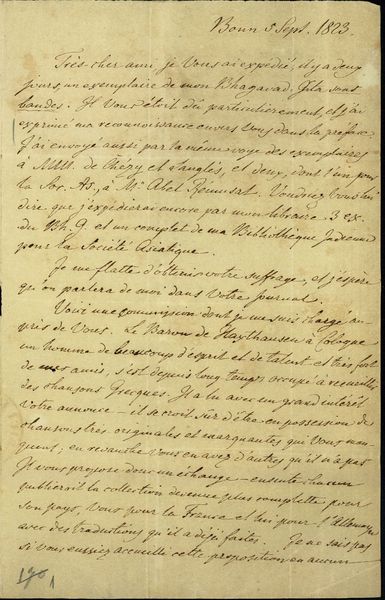 Bonn 5 Sept. 1823.
Très-cher ami, je Vous ai expedié, il y a deux
jours un exemplaire de mon Bhagavad-Gita sous
bandes. Il Vous étoit dû particulièrement, et j'ai
exprimé ma reconnoissance envers Vous dans la preface.
J'ai envoyé aussi par la même voye des exemplaires
à MM. de Chézy et Langlès, et deux, dont l'un pour
la Soc. As., à Mr Abel Remusat. Voudriez Vous lui
dire que j'expédierai encore par mon libraire 3 ex.
du Bh. G. et un complet de ma Bibliothèque Indienne
pour la Société Asiatique.
Je me flatte d'obtenir votre suffrage, et j'espère
qu'on parlera de moi dans Votre journal.
Voici une commission dont je me suis chargé au-
près de Vous. Le Baron de Haxthausen à Cologne
un homme de beaucoup d'esprit et de talent et très fort
de mes amis, s'est depuis long temps occupé à recueillir
des chansons Grecques. Il a lu avec un grand intérêt
Votre annonce – il se croit sûr d'être en possession de
chansons très originales et marquantes qui Vous man-
quent; en revanche Vous en avez d'autres qu'il n'a pas
Il Vous propose donc un échange – ensuite chacun
publieroit la collection devenue plus complette pour
son pays, Vous pour la France et lui pour l'Allemagne
avec des traductions qu'il a déjà faites. Je ne sais pas
si Vous eussiez accueilli cette proposition en aucun
170
1